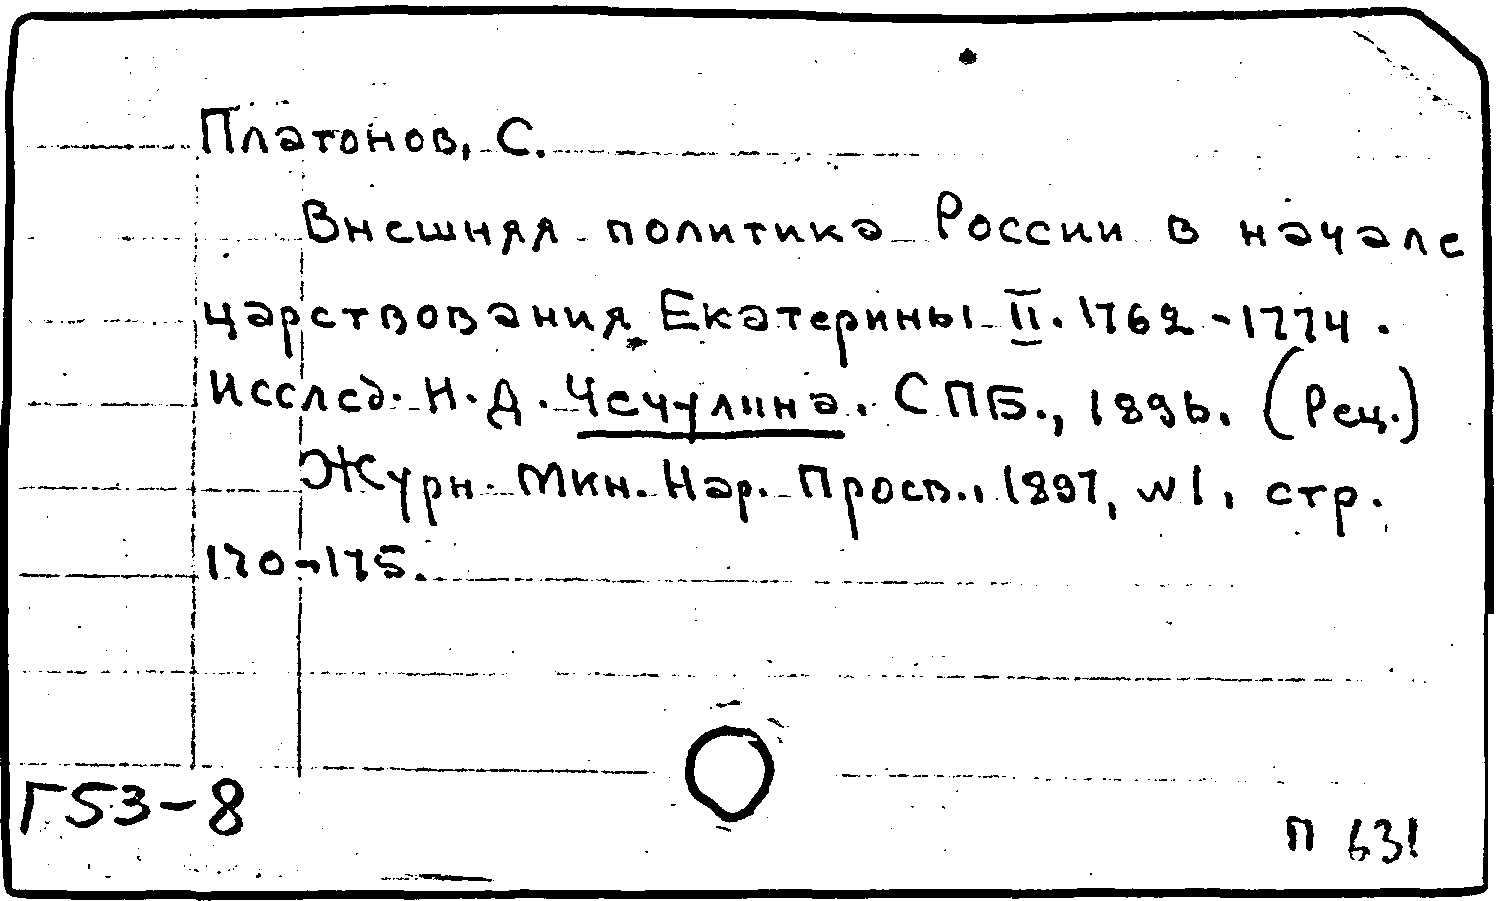 Платонов, С.
Внешняя политика России в начале
царствования Екатерины II. 1762-1774.
Исслед. Н. Д. Чечулина. СПБ., 1896. (Рец.)
Журн. Мин. Нар. Просв., 1897, N 1, стр.
170-175.
Г53-8
П 631